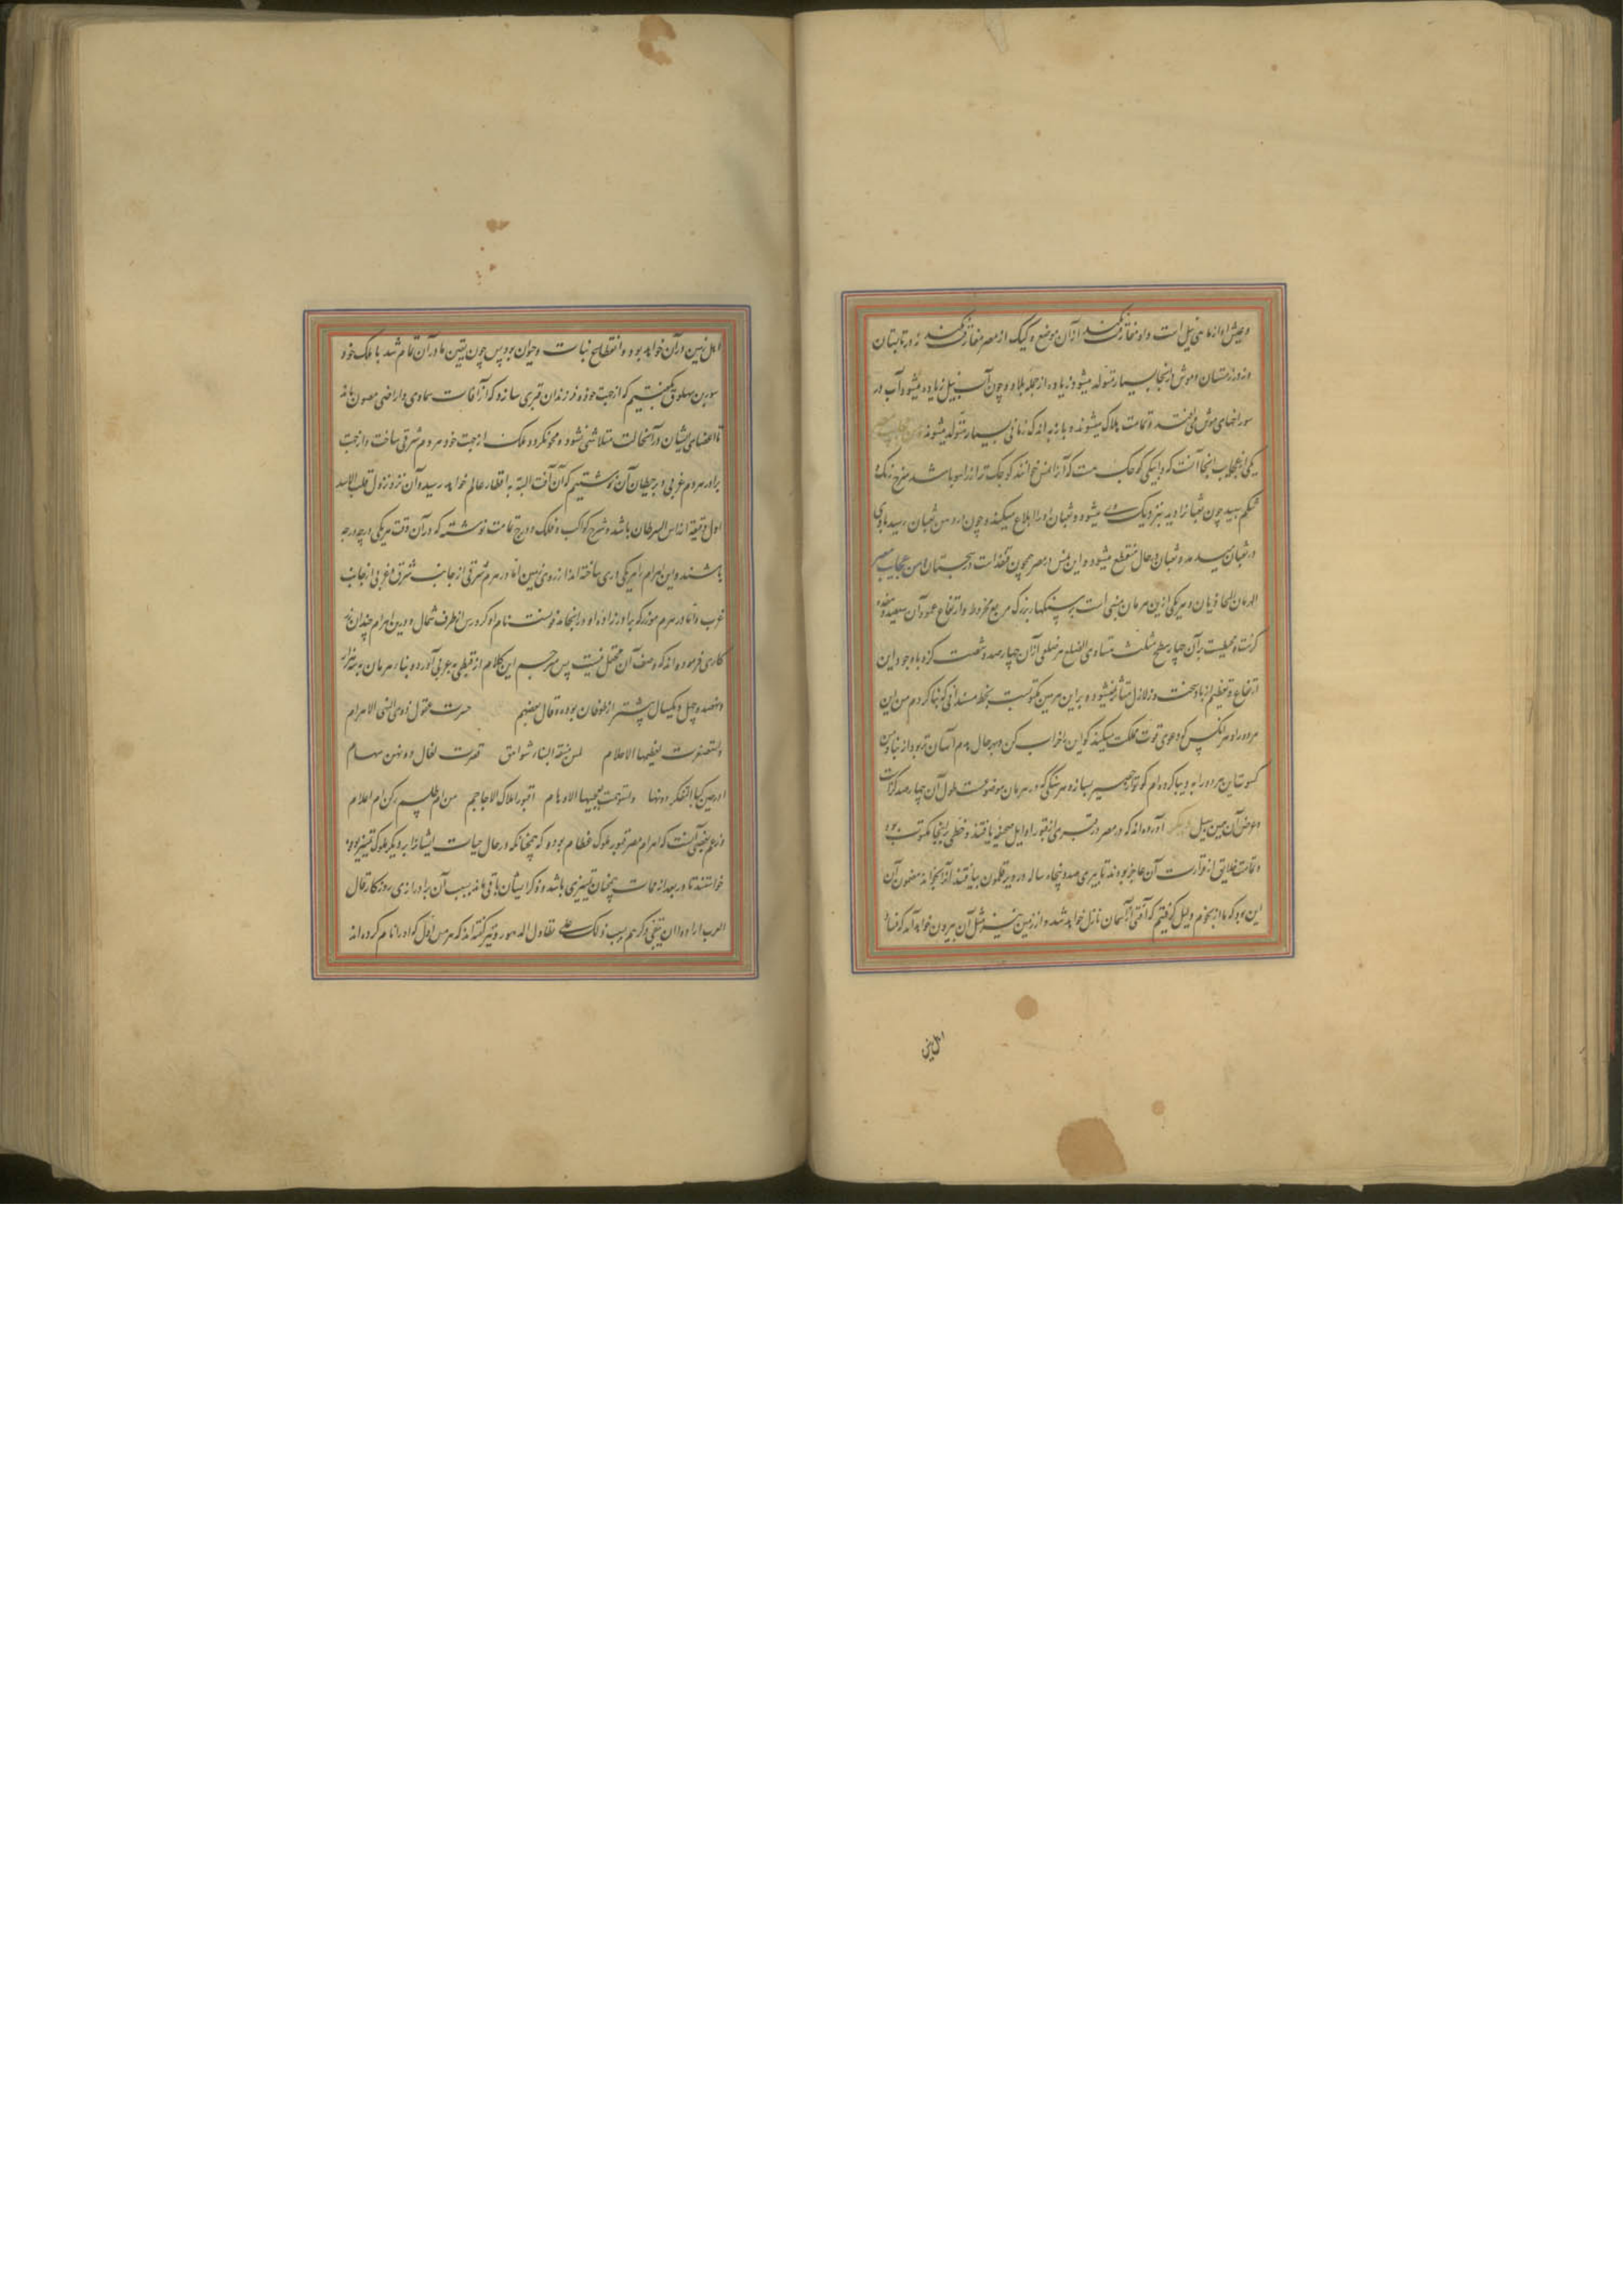 و عیش او از ماهی نیل است و او مفارقت نکند از آن موضع و کیک از مصر مفارقت نکند نه در تابستان
و نه در زمستان و موش در آنجا بسیار متولد میشود زیاده از جمله بلاد و چون آب نیل زیاده میشود آب در
سوراخهای موش می‌افتد و تمامت هلاک میشوند و باز به اندک زمانی بسیار متولد میشوند
یکی از عجایب آنجا آنست که دابه‌یکی کوچک هست که آنرا نمس خوانند کوچک‌تر از راسو باشد سرخ رنگ و
شکم سپید چون ثعبان او را به بیند نزدیک وی میشود و ثعبان او را ابلاع میکند و چون در دهن ثعبان رسید بادی
در ثعبان میدمد و ثعبان در حال منقطع میشود و این نمس در مصر همچون قنفذ است در سجستان و من عجایب مصر
الهرمان المحاذیان و هر یکی ازین هرمان مبنی است به سنگهای بزرگ مربع مخروط و ارتفاع عمود آن سیصد و هفده
گزست و محیطست بر آن چهار سطح مثلث متساوی الضلع هر ضلعی از آن چهارصد و شصت گز و با وجود این
ارتفاع و تعظیم از باد سخت و زلازل متأثر نمیشود و برین هرمین مکتوبست بخط مسندانی که بنا کردم من این
هر دو را و هر آنکس که دعوی قوت مملکت میکند گو این را خراب کن و بهر حال هدم آسان‌تر بود از بنا و من
کسوت این هر دو را به دیبا کرده‌ام گو تو حصیر بساز و هر سنگی که در هرمان موضوعست طول آن چهارصد گز است
و عرض آن همین سبیل آورده‌اند که در مصر در قبری از قبور اوایل صحیفه یافتند و خطی برینجا مکتوب بود
و تمامت خلایق از قرائت آن عاجز بودند تا پیری صد و پنجاه ساله در دیر قلمون بیافتند آنرا بخواند مضمون آن
این بود که ما از نجوم دلیل گرفتیم که آفتی از آسمان نازل خواهد شد و از زمین نیز مثل آن بیرون خواهد آمد که فساد
اهل زمین
اهل زمین در آن خواهد بود و انقطاع نبات و حیوان بود پس چون یقین ما در آن تمام شد با ملک خود
سورین سهلوق گفتیم که از جهت خود و فرزندان قبری سازد که از آفات سماوی و اراضی مصون ماند
تا اعضای ایشان در آنحالت متلاشی نشود و محو نگردد ملک از جهت خود هرم شرقی ساخت و از جهت
برادر هرم غربی و بر حیطان آن نوشتیم که آن آفت البته به اقطار عالم خواهد رسید و آن نزد نزول قلب الاسد
اول دقیقه از راس السرطان باشد و شرح کواکب و فلک و درج تمامت نوشته که در آن وقت هر یکی در چه درجه
باشند و این اهرام را هر یکی دری ساخته‌اند از روی زمین اما در هرم شرقی از جانب شرق و غربی از جانب
غرب و اما در هرم موزر که برادرزاده او در آنجا مدفونست نام او کردرس از طرف شمال و درین اهرام چندان زر
کاری فرموده‌اند که وصف آن محتمل نیست پس مترجم این کلام از قبطی به عربی آورده و بناء هرمان به سه هزار
و نهصد و چهل و یکسال پیشتر از طوفان بوده و قال بعضهم حسرت عقول ذوی النهی الاهرام
و استصغرت لعظیمها الاحلام ملس منبقة البناء شواهق قصرت لعال دونهن سهام
لم ادر حین کبا التفکر دونها و استوهمت لعجیبها الاوهام اقبور املاک الاعاجم هن ام طلسم رمل کن ام اعلام
و زعم بعضی آنست که اهرام مصر قبور ملوک عظام بوده که همچنانکه در حال حیات ایشانرا بر دیگر ملوک تمییز بوده
خواستند تا در بعد از ممات همچنان تمییزی باشد و ذکر ایشان باقی ماند بسبب آن بر درازی روزگار قال
العرب ارادوا ان یبقی ذکرهم بسبب ذلک علی تطاول الدهور و نیز گفته‌اند که هرمس اول که او را نام کرده‌اند